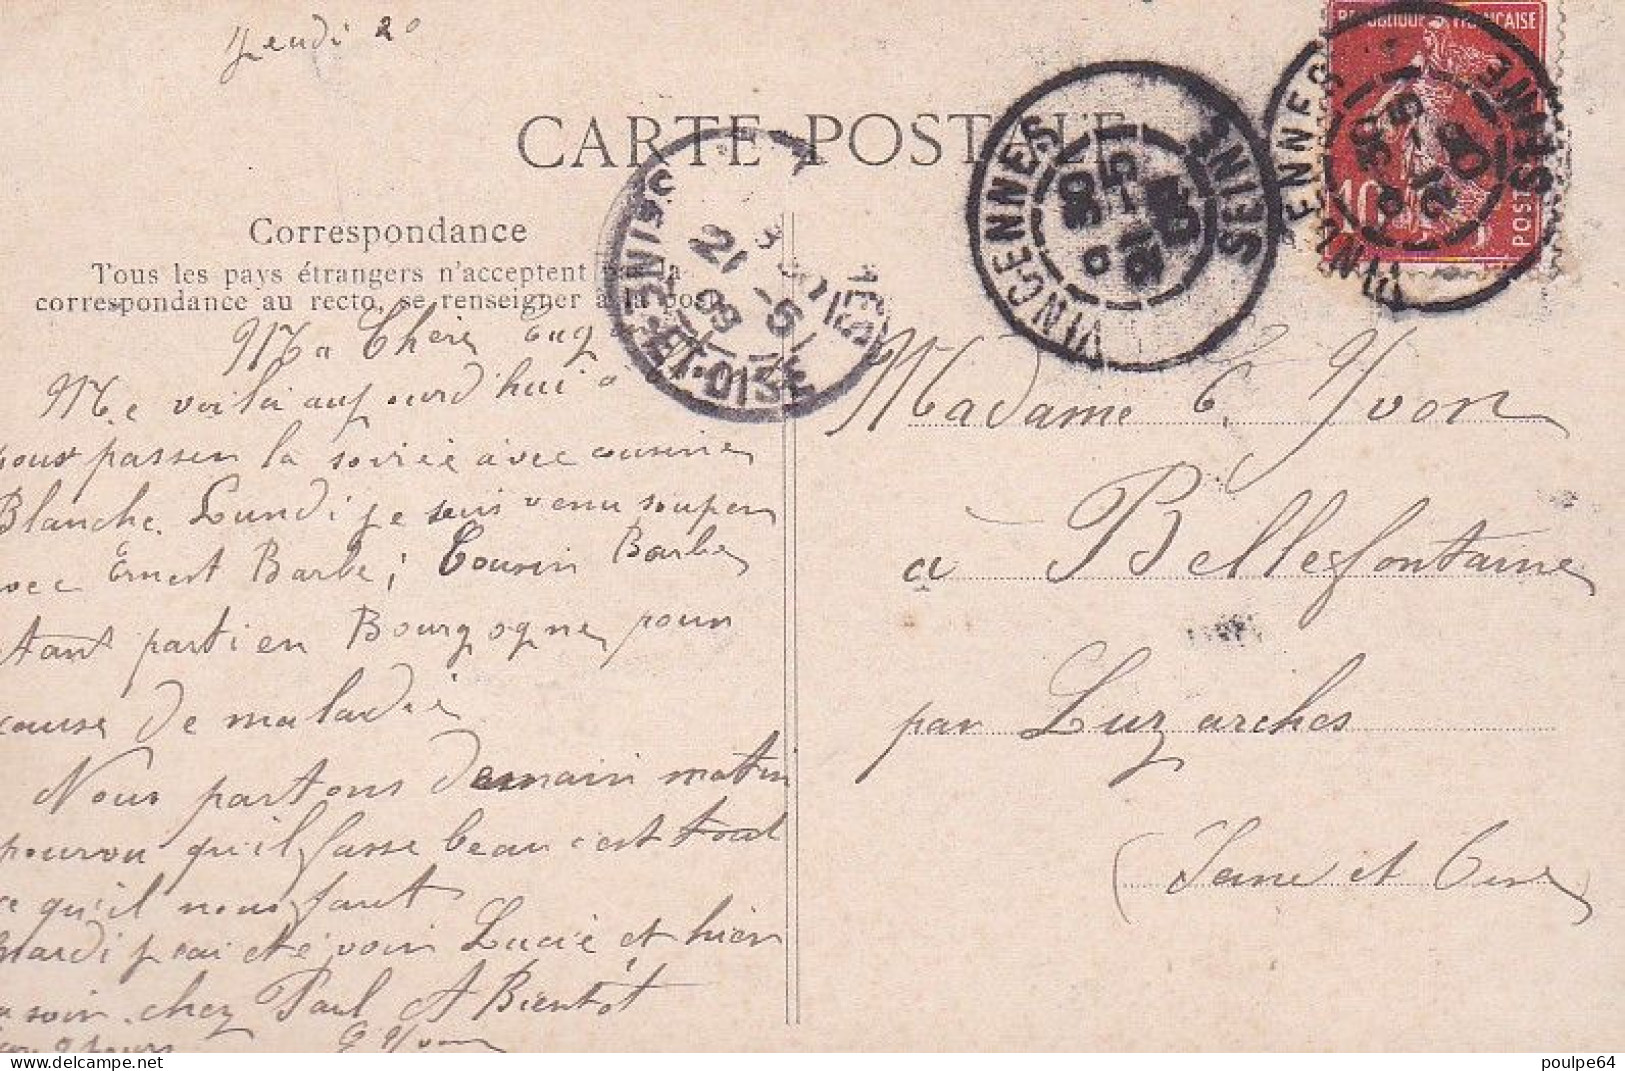 Jeudi 20
REPUBLIQUE FRANÇAISE
10
POSTES
CARTE POSTALE
VINCENNES
SEINE
VINCENNES
SEINE
SEINE-ET-OISE
21 -5
09
Correspondance
Tous les pays étrangers n'acceptent la
correspondance au recto, se renseigner à la poste
Ma Chère
Me voilà aujourd'hui
pour passer la soirée avec cousine
Blanche. Lundi je suis venu souper
avec Ernest Barbe ; Cousin Barbe
étant parti en Bourgogne pour
cause de maladie
Nous partons demain matin
pourvu qu'il fasse beau c'est tout
ce qu'il nous faut
mardi j'ai été voir Lucie et hier
au soir chez Paul A Bientôt
Yvon
Madame C. Yvon
à Bellefontaine
par Luzarches
(Seine et Oise)
poulpe64